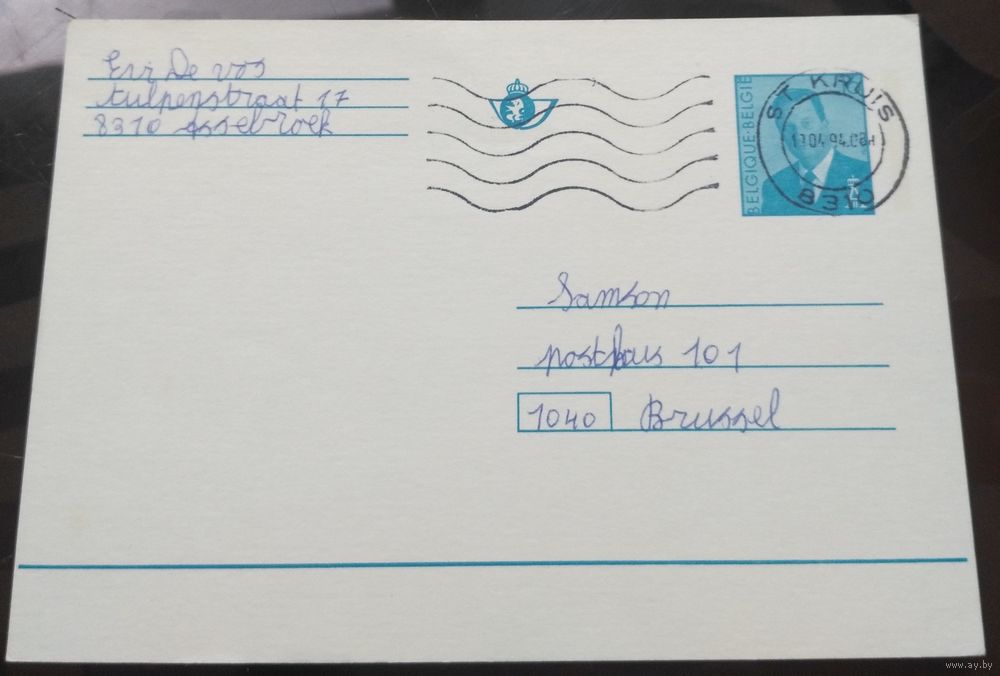 Evi De vos
tulpenstraat 17
8310 Assebroek
BELGIQUE·BELGIE
ST KRUIS
04.94.08H
8310
Samson
postbus 101
1040 Brussel
www.ay.by